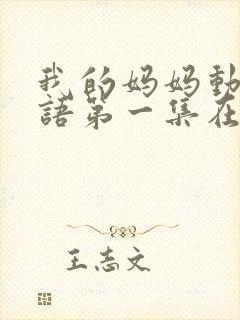 我的妈妈動
語第一集在
王志文